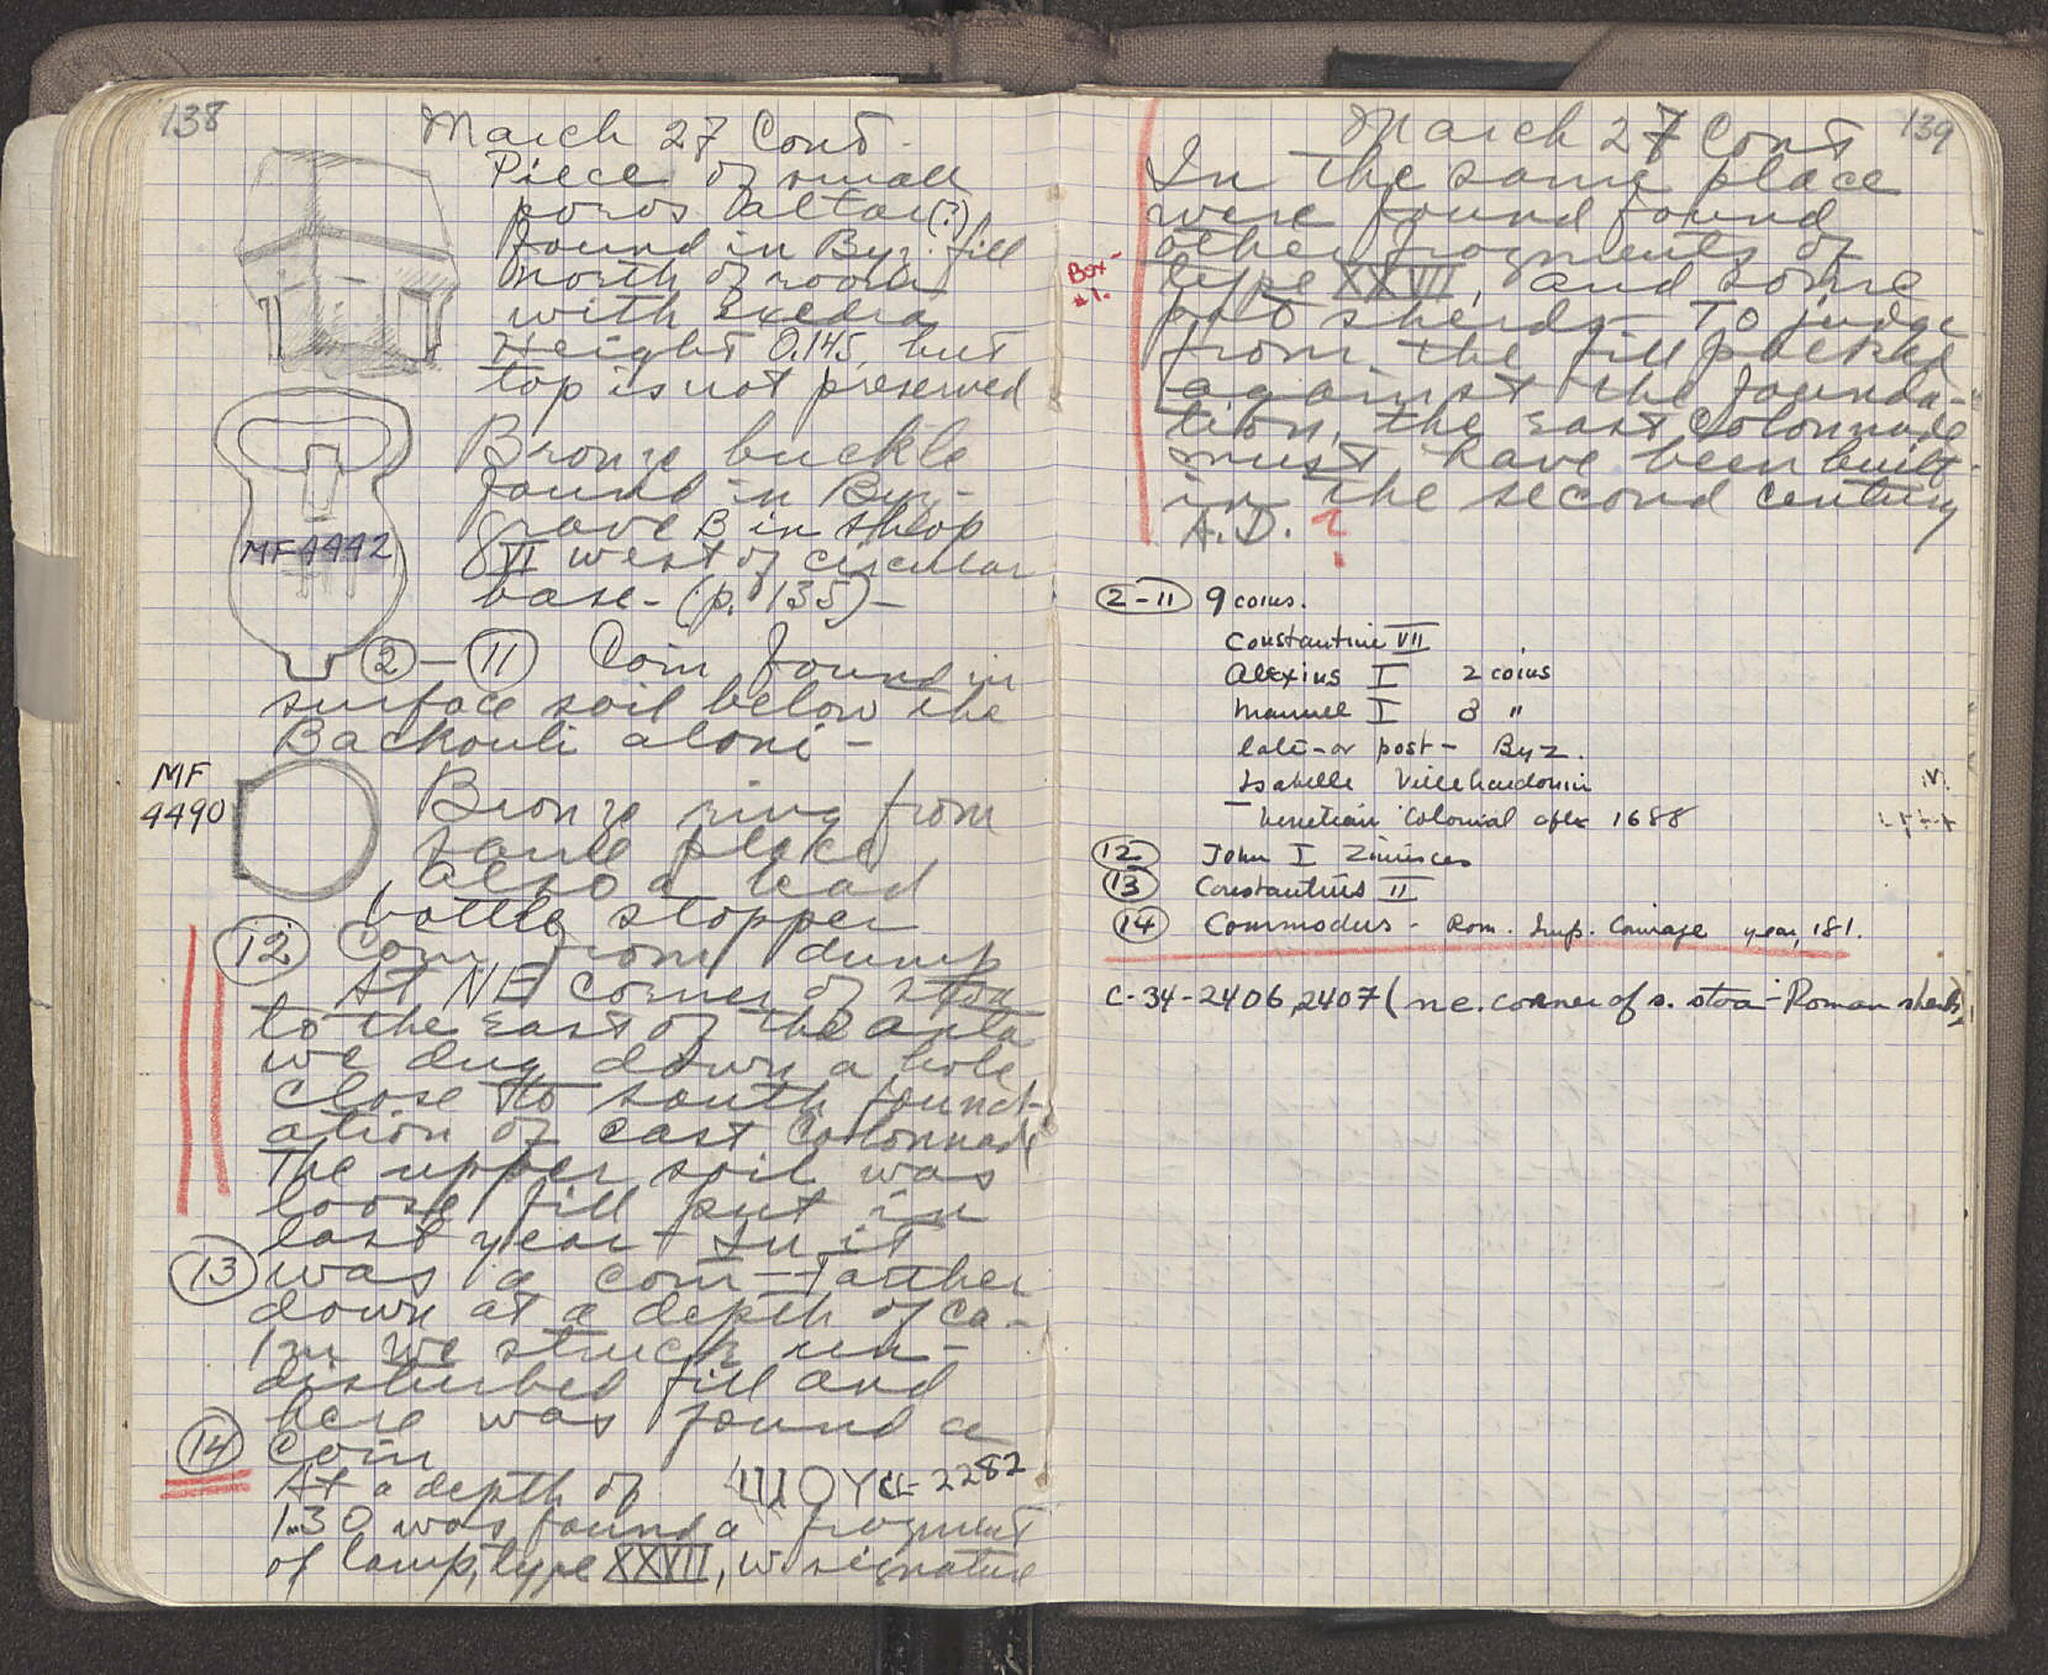 138
March 27 Cont.
Piece of small
poros altar (?)
found in Byz. fill
north of room
with Exedra
Height 0.145, but
top is not preserved
Bronze buckle
found in Byz.
grave B in shop
VII west of circular
base - (p. 135) -
MF 4442
2 - 11 Coin found in
surface soil below the
Backouli aloni -
MF
4490
Bronze ring from
same place
also a lead
bottle stopper
12 Coin from dump
At NE corner of stoa
to the east of the anta
we dug down a hole
close to south found-
ation of east Colonnade
The upper soil was
loose fill put in
last year - In it
13 was a coin - Farther
down at a depth of ca -
1 m we struck un-
disturbed fill and
here was found a
14 coin
At a depth of
1.30 was found a fragment
of lamp, type XXVII, w. signature
ШOY CL-2282
139
March 27 Cont
In the same place
were found found
other fragments of
type XXVII, and some
pot sherds - To judge
from the fill packed
against the founda-
tion, the east Colonnade
must have been built
in the second century
A.D. ?
Box -
#1.
2-11 9 coins.
Constantine VII
Alexius I 2 coins
Manuel I 3 "
late - or post - Byz.
Isabelle Villehardouin
Venetian Colonial after 1688
12 John I Zimisces
13 Constantius II
14 Commodus - Rom. Imp. Coinage year, 181.
C-34-2406, 2407 (n e. corner of s. stoa - Roman sherds)